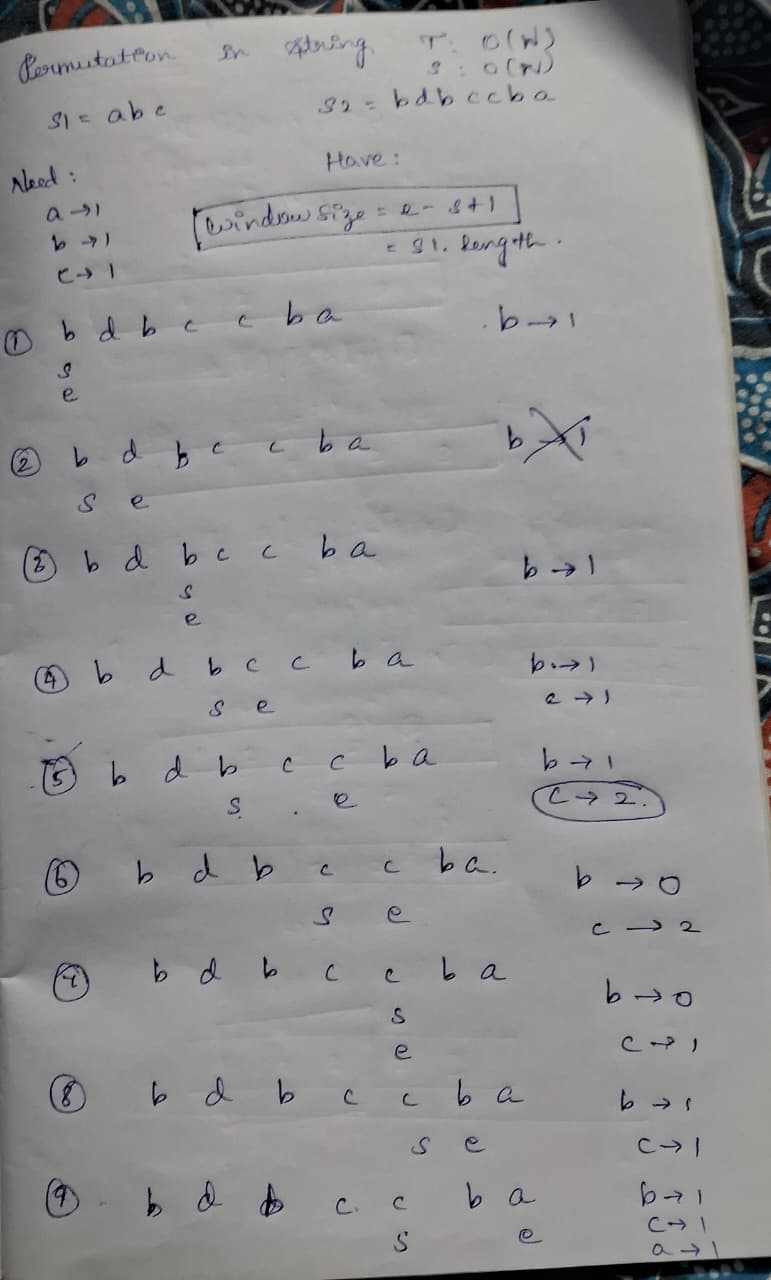 Permutation in string T: O(N)
S: O(N)
S1 = abc S2 = bdbccba
Need: Have:
a → 1
b → 1
c → 1
Window size = e - s + 1
= S1. length.
① b d b c c b a b → 1
s
e
② b d b c c b a b → 1
s e
③ b d b c c b a b → 1
s
e
④ b d b c c b a b → 1
s e c → 1
⑤ b d b c c b a b → 1
s . e c → 2.
⑥ b d b c c b a. b → 0
s e c → 2
⑦ b d b c c b a b → 0
s
e c → 1
⑧ b d b c c b a b → 1
s e c → 1
⑨ b d b c. c b a b → 1
c → 1
s e a → 1